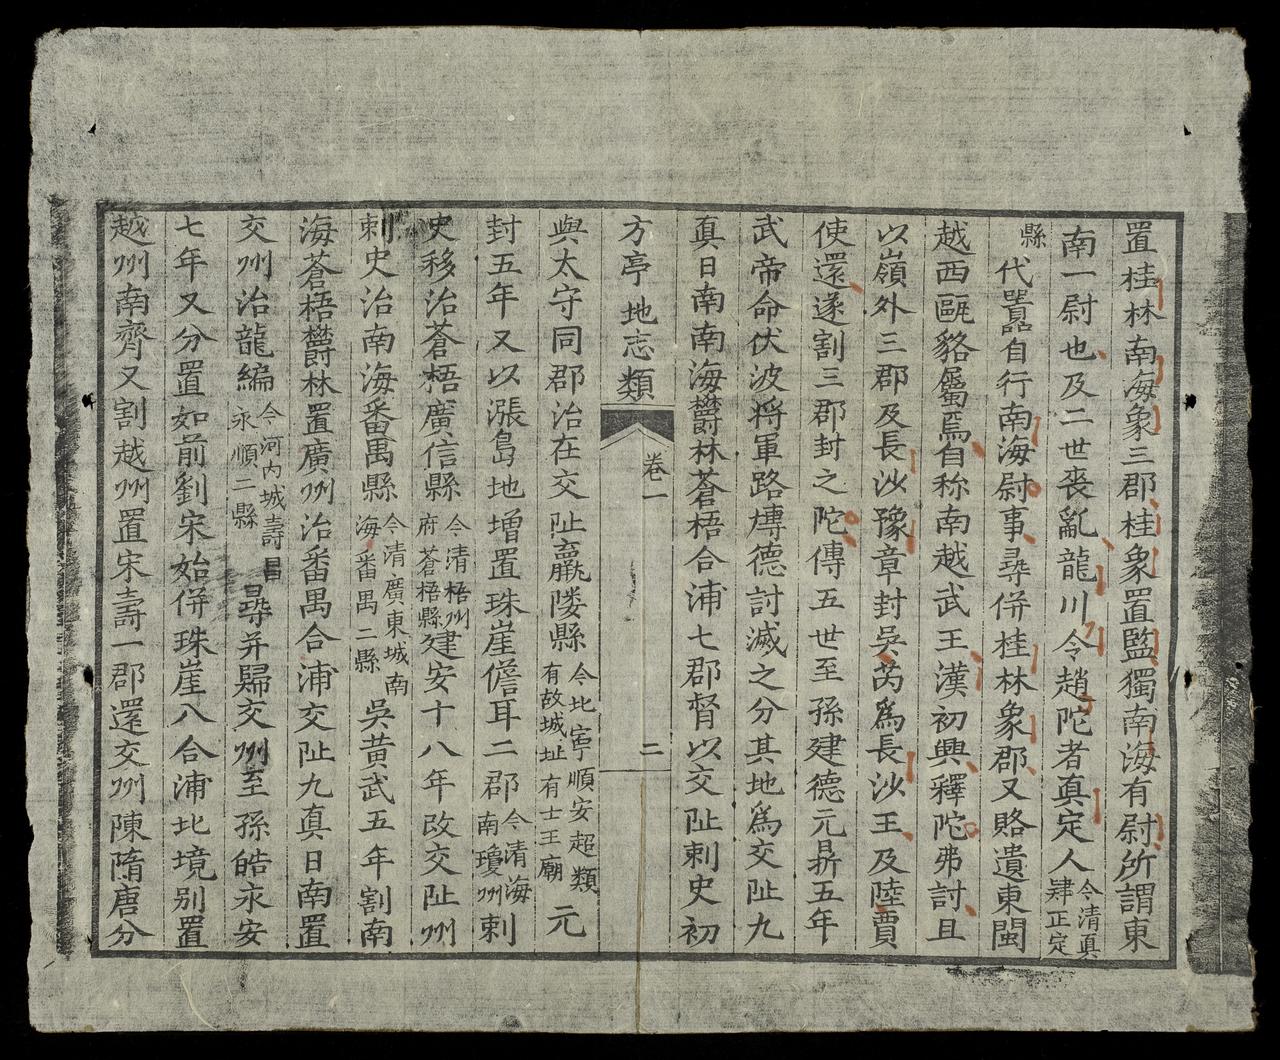 置桂林南海象三郡桂象置監獨南海有尉所謂東
南一尉也及二世喪亂龍川令趙陀者真定人今清真肆正定
縣代囂自行南海尉事尋併桂林象郡又賂遺東閩
越西甌貉屬焉自称南越武王漢初興釋陀弗討且
以嶺外三郡及長沙豫章封吳芮爲長沙王及陸賈
使還遂割三郡封之陀傳五世至孫建德元鼎五年
武帝命伏波将軍路博德討滅之分其地爲交趾九
真日南南海欝林蒼梧合浦七郡督以交趾刺史初
方亭地志類
卷一
二
與太守同郡治在交趾羸𨻻縣今北寧順安超類有故城址有士王廟元
封五年又以漲島地增置珠崖儋耳二郡今清海南瓊州刺
史移治蒼梧廣信縣今清梧州府蒼梧縣建安十八年改交趾州
刺史治南海番禺縣今清廣東城南海番禺二縣吳黄武五年割南
海蒼梧欝林置廣州治番禺合浦交趾九真日南置
交州治龍編今河内城壽昌永順二縣尋并歸交州至孫皓永安
七年又分置如前劉宋始併珠崖八合浦北境别置
越州南齊又割越州置宋壽一郡還交州陳隋唐分